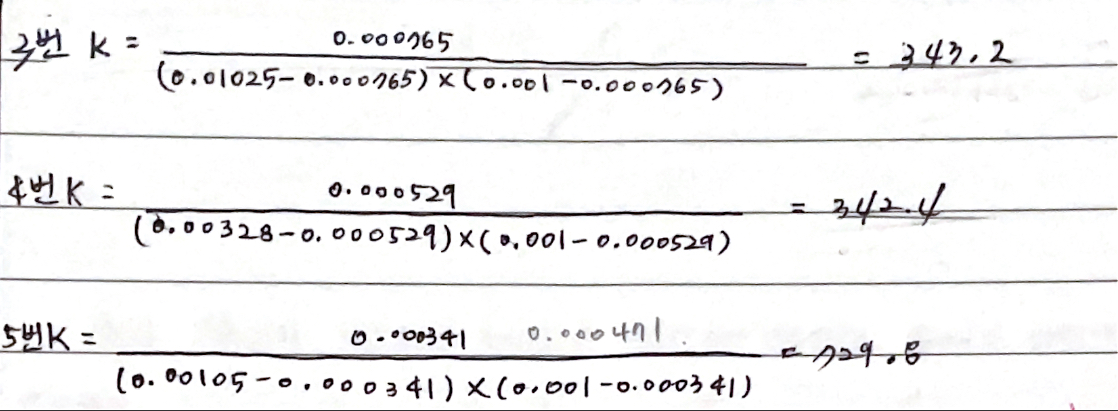 3번 K = 0.000765 / (0.01025-0.000765)×(0.001-0.000765) = 343.2
4번 K = 0.000529 / (0.00328-0.000529)×(0.001-0.000529) = 342.4
5번 K = 0.000341 0.000471 / (0.00105-0.000341)×(0.001-0.000341) = 729.8